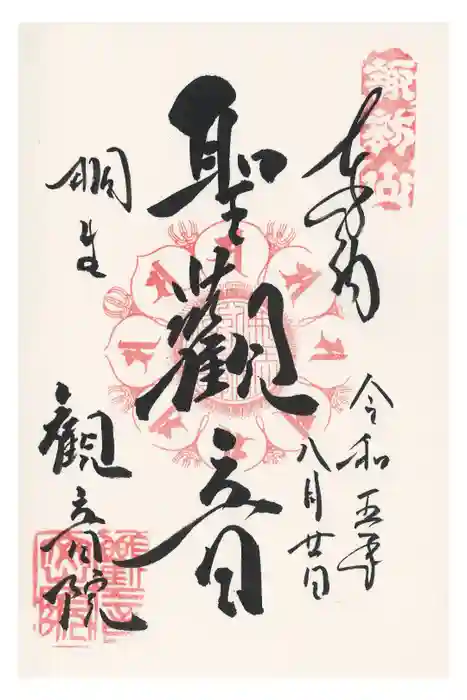 諏訪山
奉納
令和五年
八月廿日
聖觀音
桐生
觀音院